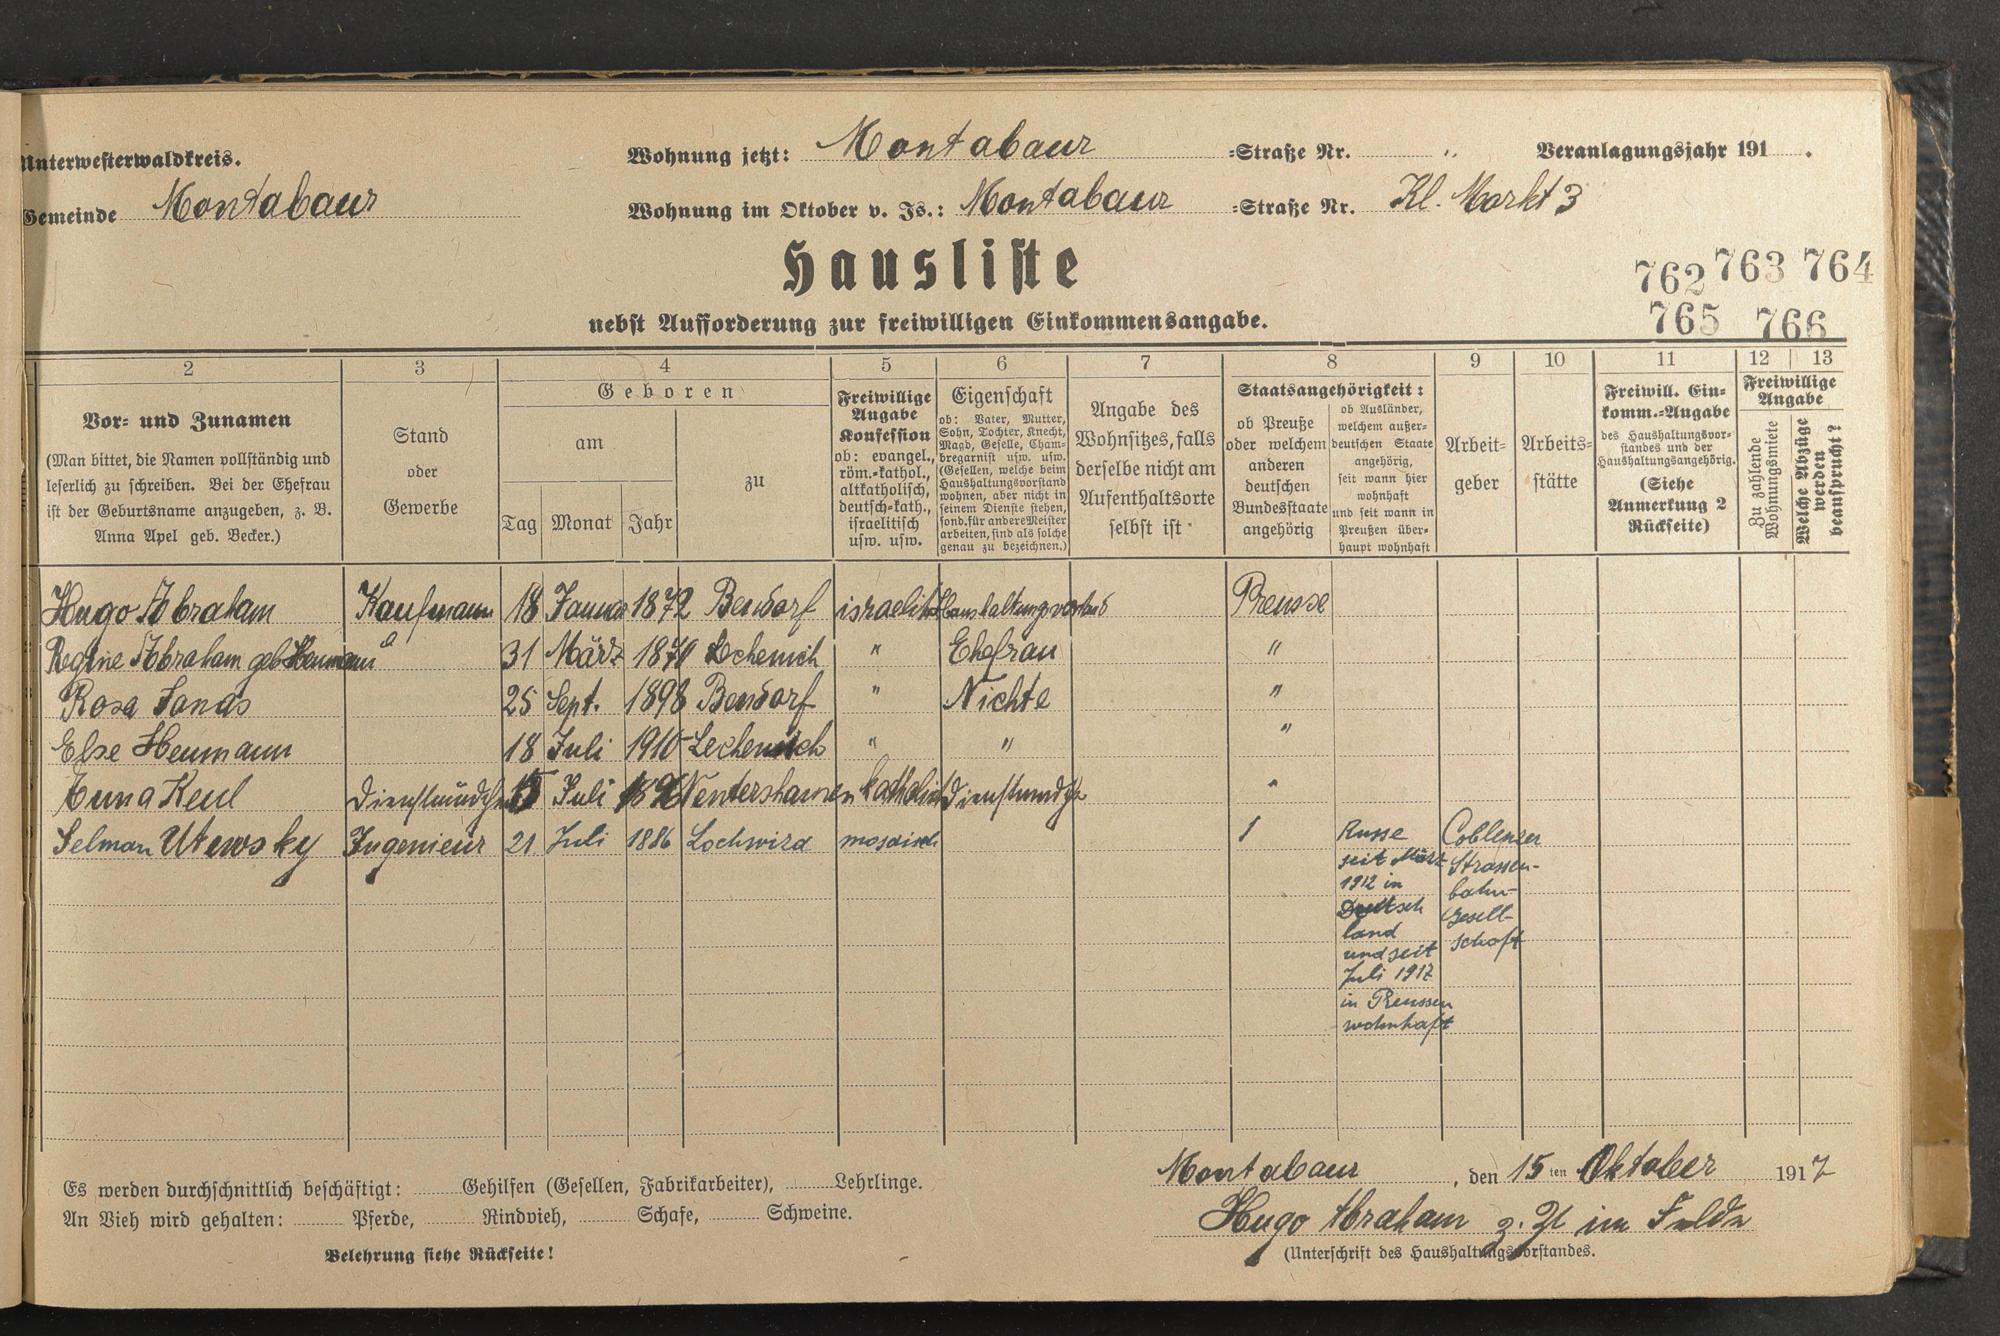 Unterwesterwaldkreis.
Wohnung jetzt: Montabaur =Straße Nr. " Veranlagungsjahr 191 .
Gemeinde Montabaur
Wohnung im Oktober v. Js.: Montabaur =Straße Nr. Kl. Markt 3
Hausliste
762 763 764
765 766
nebst Aufforderung zur freiwilligen Einkommensangabe.
2 3 4 5 6 7 8 9 10 11 12 13
Vor- und Zunamen
(Man bittet, die Namen vollständig und
leserlich zu schreiben. Bei der Ehefrau
ist der Geburtsname anzugeben, z. B.
Anna Apel geb. Becker.)
Stand
oder
Gewerbe
Geboren
am
Tag Monat Jahr
zu
Freiwillige
Angabe
Konfession
ob: evangel.,
röm.-kathol.,
altkatholisch,
deutsch-kath.,
israelitisch
usw. usw.
Eigenschaft
ob: Vater, Mutter,
Sohn, Tochter, Knecht,
Magd, Geselle, Cham-
bregarnist usw. usw.
(Gesellen, welche beim
Haushaltungsvorstand
wohnen, aber nicht in
seinem Dienste stehen,
sond. für andere Meister
arbeiten, sind als solche
genau zu bezeichnen.)
Angabe des
Wohnsitzes, falls
derselbe nicht am
Aufenthaltsorte
selbst ist
Staatsangehörigkeit:
ob Preuße
oder welchem
anderen
deutschen
Bundesstaate
angehörig
ob Ausländer,
welchem außer-
deutschen Staate
angehörig,
seit wann hier
wohnhaft
und seit wann in
Preußen über-
haupt wohnhaft
Arbeit-
geber
Arbeits-
stätte
Freiwill. Ein-
komm.-Angabe
des Haushaltungsvor-
standes und der
Haushaltungsangehörig.
(Siehe
Anmerkung 2
Rückseite)
Freiwillige
Angabe
Zu zahlende
Wohnungsmiete
Welche Abzüge
werden
beansprucht?
Hugo Abraham Kaufmann 18 Januar 1872 Bendorf israelit. Haushaltungsvorstand Preusse
Regine Abraham geb. Heumann 31 März Lechenich " Ehefrau "
Rosa Sands 25 Sept. 1898 Bendorf " Nichte "
Else Heumann 18 Juli 1910 Lechenich " " "
Anna Keul Dienstmädchen 15 Juli Nentershausen katholisch Dienstmädch "
Selman Utewsky Ingenieur 21 Juli 1886 Lochwiza mosaisch / Russe
seit März
1912 in
Deutsch
land
und seit
Juli 1917
in Preussen
wohnhaft
Coblenzer
Strassen-
bahn-
Gesell-
schaft
Es werden durchschnittlich beschäftigt: Gehilfen (Gesellen, Fabrikarbeiter), Lehrlinge.
An Vieh wird gehalten: Pferde, Rindvieh, Schafe, Schweine.
Belehrung siehe Rückseite!
Montabaur, den 15ten Oktober 1917
Hugo Abraham z. Zt im Felde
(Unterschrift des Haushaltungsvorstandes.